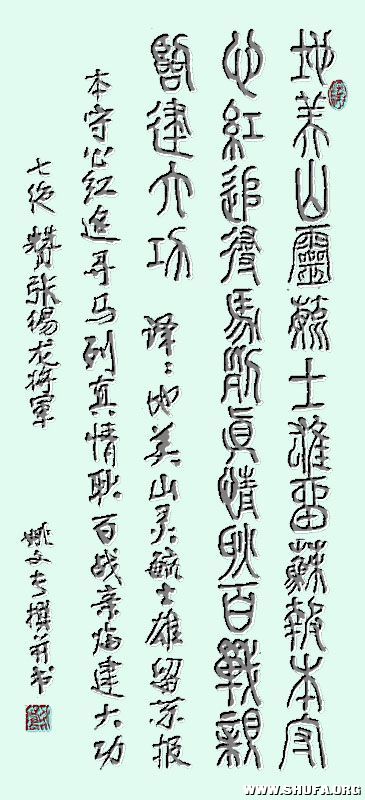 地美山靈毓士雄留蘇報本守
心紅追尋馬列真情耿百戰親
臨建大功 译：地美山灵毓士雄留苏报
本守心红追寻马列真情耿百战亲临建大功
七绝 赞张锡龙将军 姚文撰并书
WWW.SHUFA.ORG